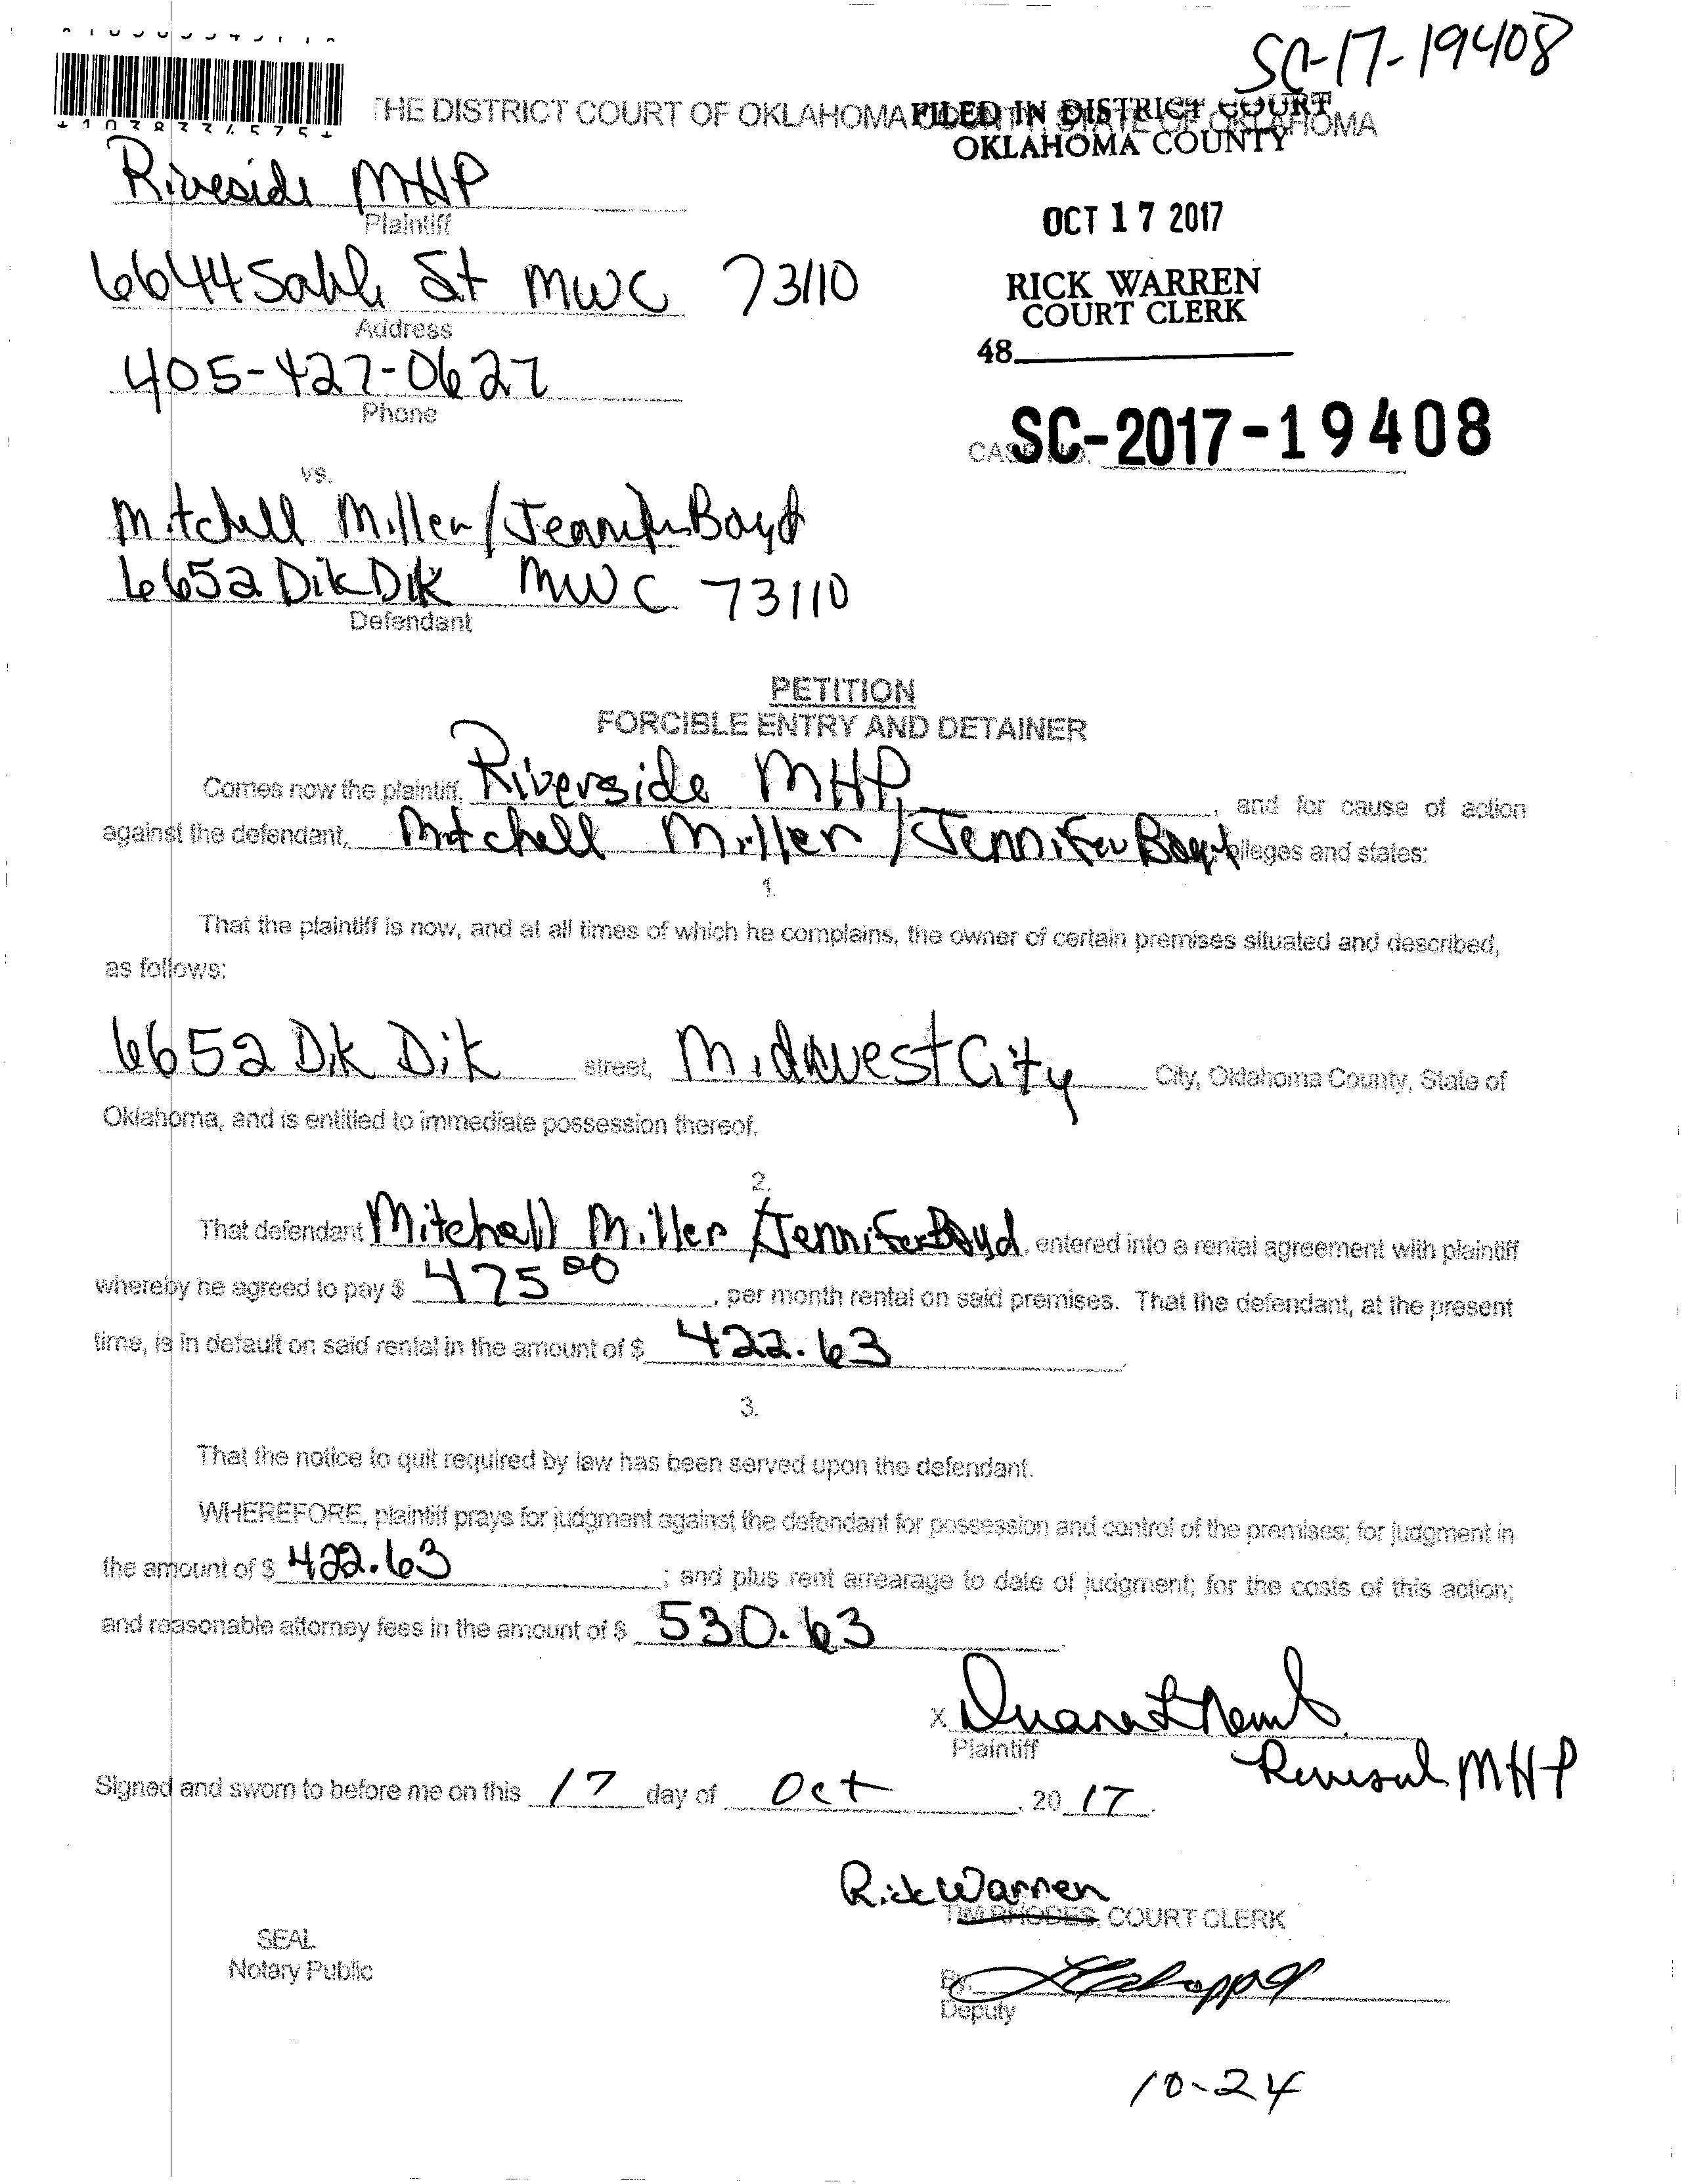 SC-17-19408
THE DISTRICT COURT OF OKLAHOMA COUNTY, STATE OF OKLAHOMA
FILED IN DISTRICT COURT
OKLAHOMA COUNTY
Riverside MHP
Plaintiff
OCT 17 2017
6644 Sable St MWC 73110
Address
RICK WARREN
COURT CLERK
48
405-427-0627
Phone
CASE NO. SC-2017-19408
vs.
Mitchell Miller/Jennifer Boyd
6652 Dik Dik MWC 73110
Defendant
PETITION
FORCIBLE ENTRY AND DETAINER
Comes now the plaintiff, Riverside MHP, and for cause of action
against the defendant, Mitchell Miller/Jennifer Boyd alleges and states:
1.
That the plaintiff is now, and at all times of which he complains, the owner of certain premises situated and described,
as follows:
6652 Dik Dik street, Midwest City City, Oklahoma County, State of
Oklahoma, and is entitled to immediate possession thereof.
2.
That defendant Mitchell Miller/Jennifer Boyd, entered into a rental agreement with plaintiff
whereby he agreed to pay $ 475 00, per month rental on said premises. That the defendant, at the present
time, is in default on said rental in the amount of $ 422.63.
3.
That the notice to quit required by law has been served upon the defendant.
WHEREFORE, plaintiff prays for judgment against the defendant for possession and control of the premises; for judgment in
the amount of $ 422.63; and plus rent arrearage to date of judgment; for the costs of this action;
and reasonable attorney fees in the amount of $ 530.63.
X
Plaintiff
MHP
Signed and sworn to before me on this 17 day of Oct, 20 17.
Rick Warren
TIM RHODES, COURT CLERK
SEAL
Notary Public
By:
Deputy
10-24